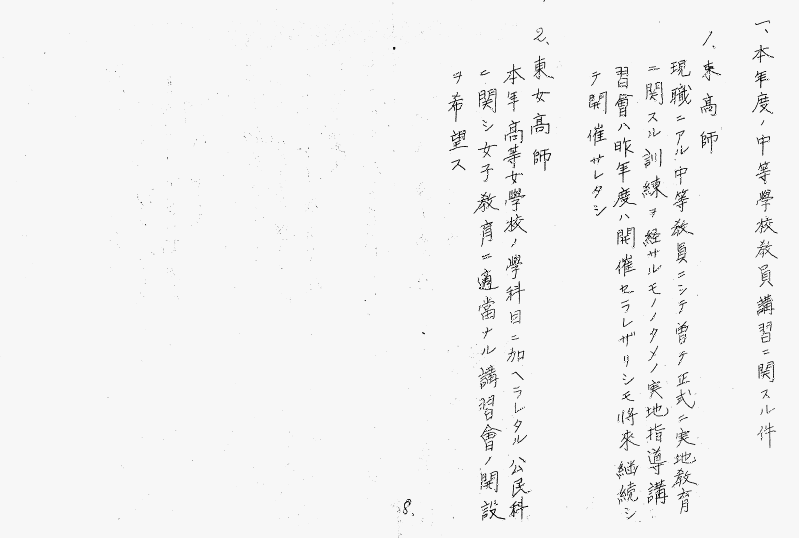 一、本年度ノ中等學校敎員講習ニ関スル件
1、東高師
現職ニアル中等敎員ニシテ曾テ正式ニ実地敎育
ニ関スル訓練ヲ経サルモノノタメノ実地指導講
習會ハ昨年度ハ開催セラレザリシモ将來継続シ
テ開催サレタシ
2、東女高師
本年高等女學校ノ學科目ニ加ヘラレタル公民科
ニ関シ女子敎育ニ適當ナル講習會ノ開設
ヲ希望ス
8.